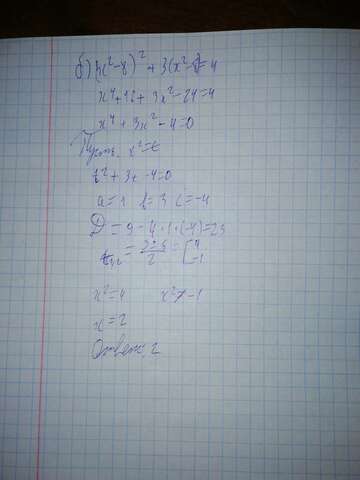 б) (x²-8)² + 3(x²-8)=4
x⁴+16+3x²-24=4
x⁴+3x²-4=0
Пусть x²=t
t²+3t-4=0
a=1 b=3 c=-4
D=9-4·1·(-4)=25
t₁,₂= = [4 -1
x²=4 x²≠-1
x=2
Ответ: 2